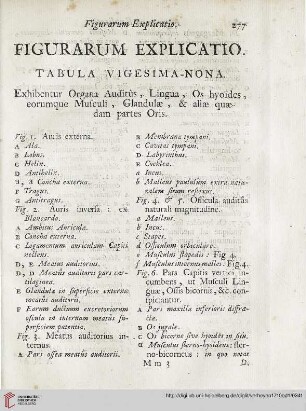 Figurarum Explicatio. 277
FIGURARUM EXPLICATIO.
TABULA VIGESIMA-NONA.
Exhibentur Organa Auditûs, Lingua, Os hyoides,
eorumque Musculi, Glandulæ, & aliæ quæ-
dam partes Oris.
Fig. 1. Auris externa.
A Ala.
B Lobus.
C Helix.
D Antihelix.
E, E Concha externa.
F Tragus.
G Antitragus.
Fig. 2. Auris inversa: ex
Blancardo.
A Ambitus Auriculæ.
B Concha externa.
C Legamentum auriculam Capiti
nectens.
D, E Meatus auditorius.
D, D Meatus auditorii pars car-
tilaginea.
E Glandula in superficie externa
meatûs auditorii.
F Earum ductuum excretoriorum
oscula ad internam meatûs su-
perficiem patentia.
Fig. 3. Meatus auditorius in-
ternus.
A Pars ossea meatûs auditorii.
B Membrana tympani.
C Cavitas tympani.
D Labyrinthus.
E Cochlea.
a Incus.
b Malleus paululum extra natu-
ralem situm reservatus.
Fig. 4. & 5. Ossicula auditûs
naturali magnitudine.
a Malleus.
b Incus.
c Stapes.
d Ossiculum orbiculare.
e Musculus stapedis: Fig. 4.
f Musculus internus mallei. Fig. 4.
Fig. 6. Para Capitis vertici in-
cumbens, ut Musculi Lin-
guæ, Ossis bicornis, &c. con-
spiciantur.
A Pars maxillæ inferioris diffra-
ctæ.
B Os jugale.
C Os bicorne sive hyoides in situ.
a Musculus sterno-hyoideus: ster-
no-bicorneus: in quo notat
M m 3 D.